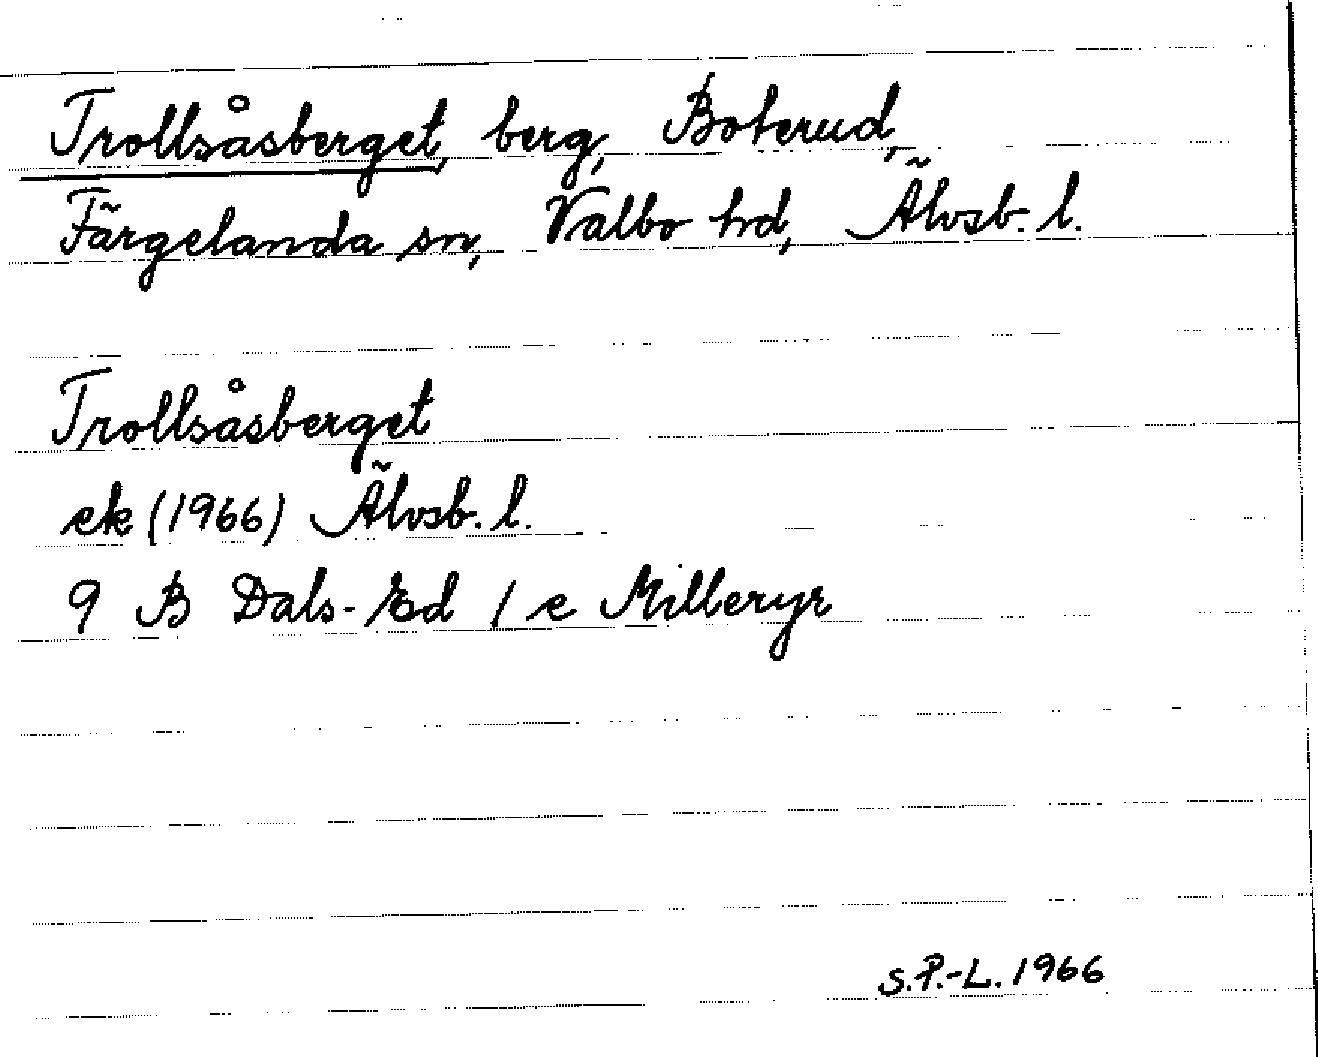 Trollsåsberget, berg, Boterud,
Färgelanda sn, Valbo hd, Älvsb. l.
Trollsåsberget
ek (1966) Älvsb. l.
9 B Dals-Ed / e Milleryr
S.P.-L. 1966